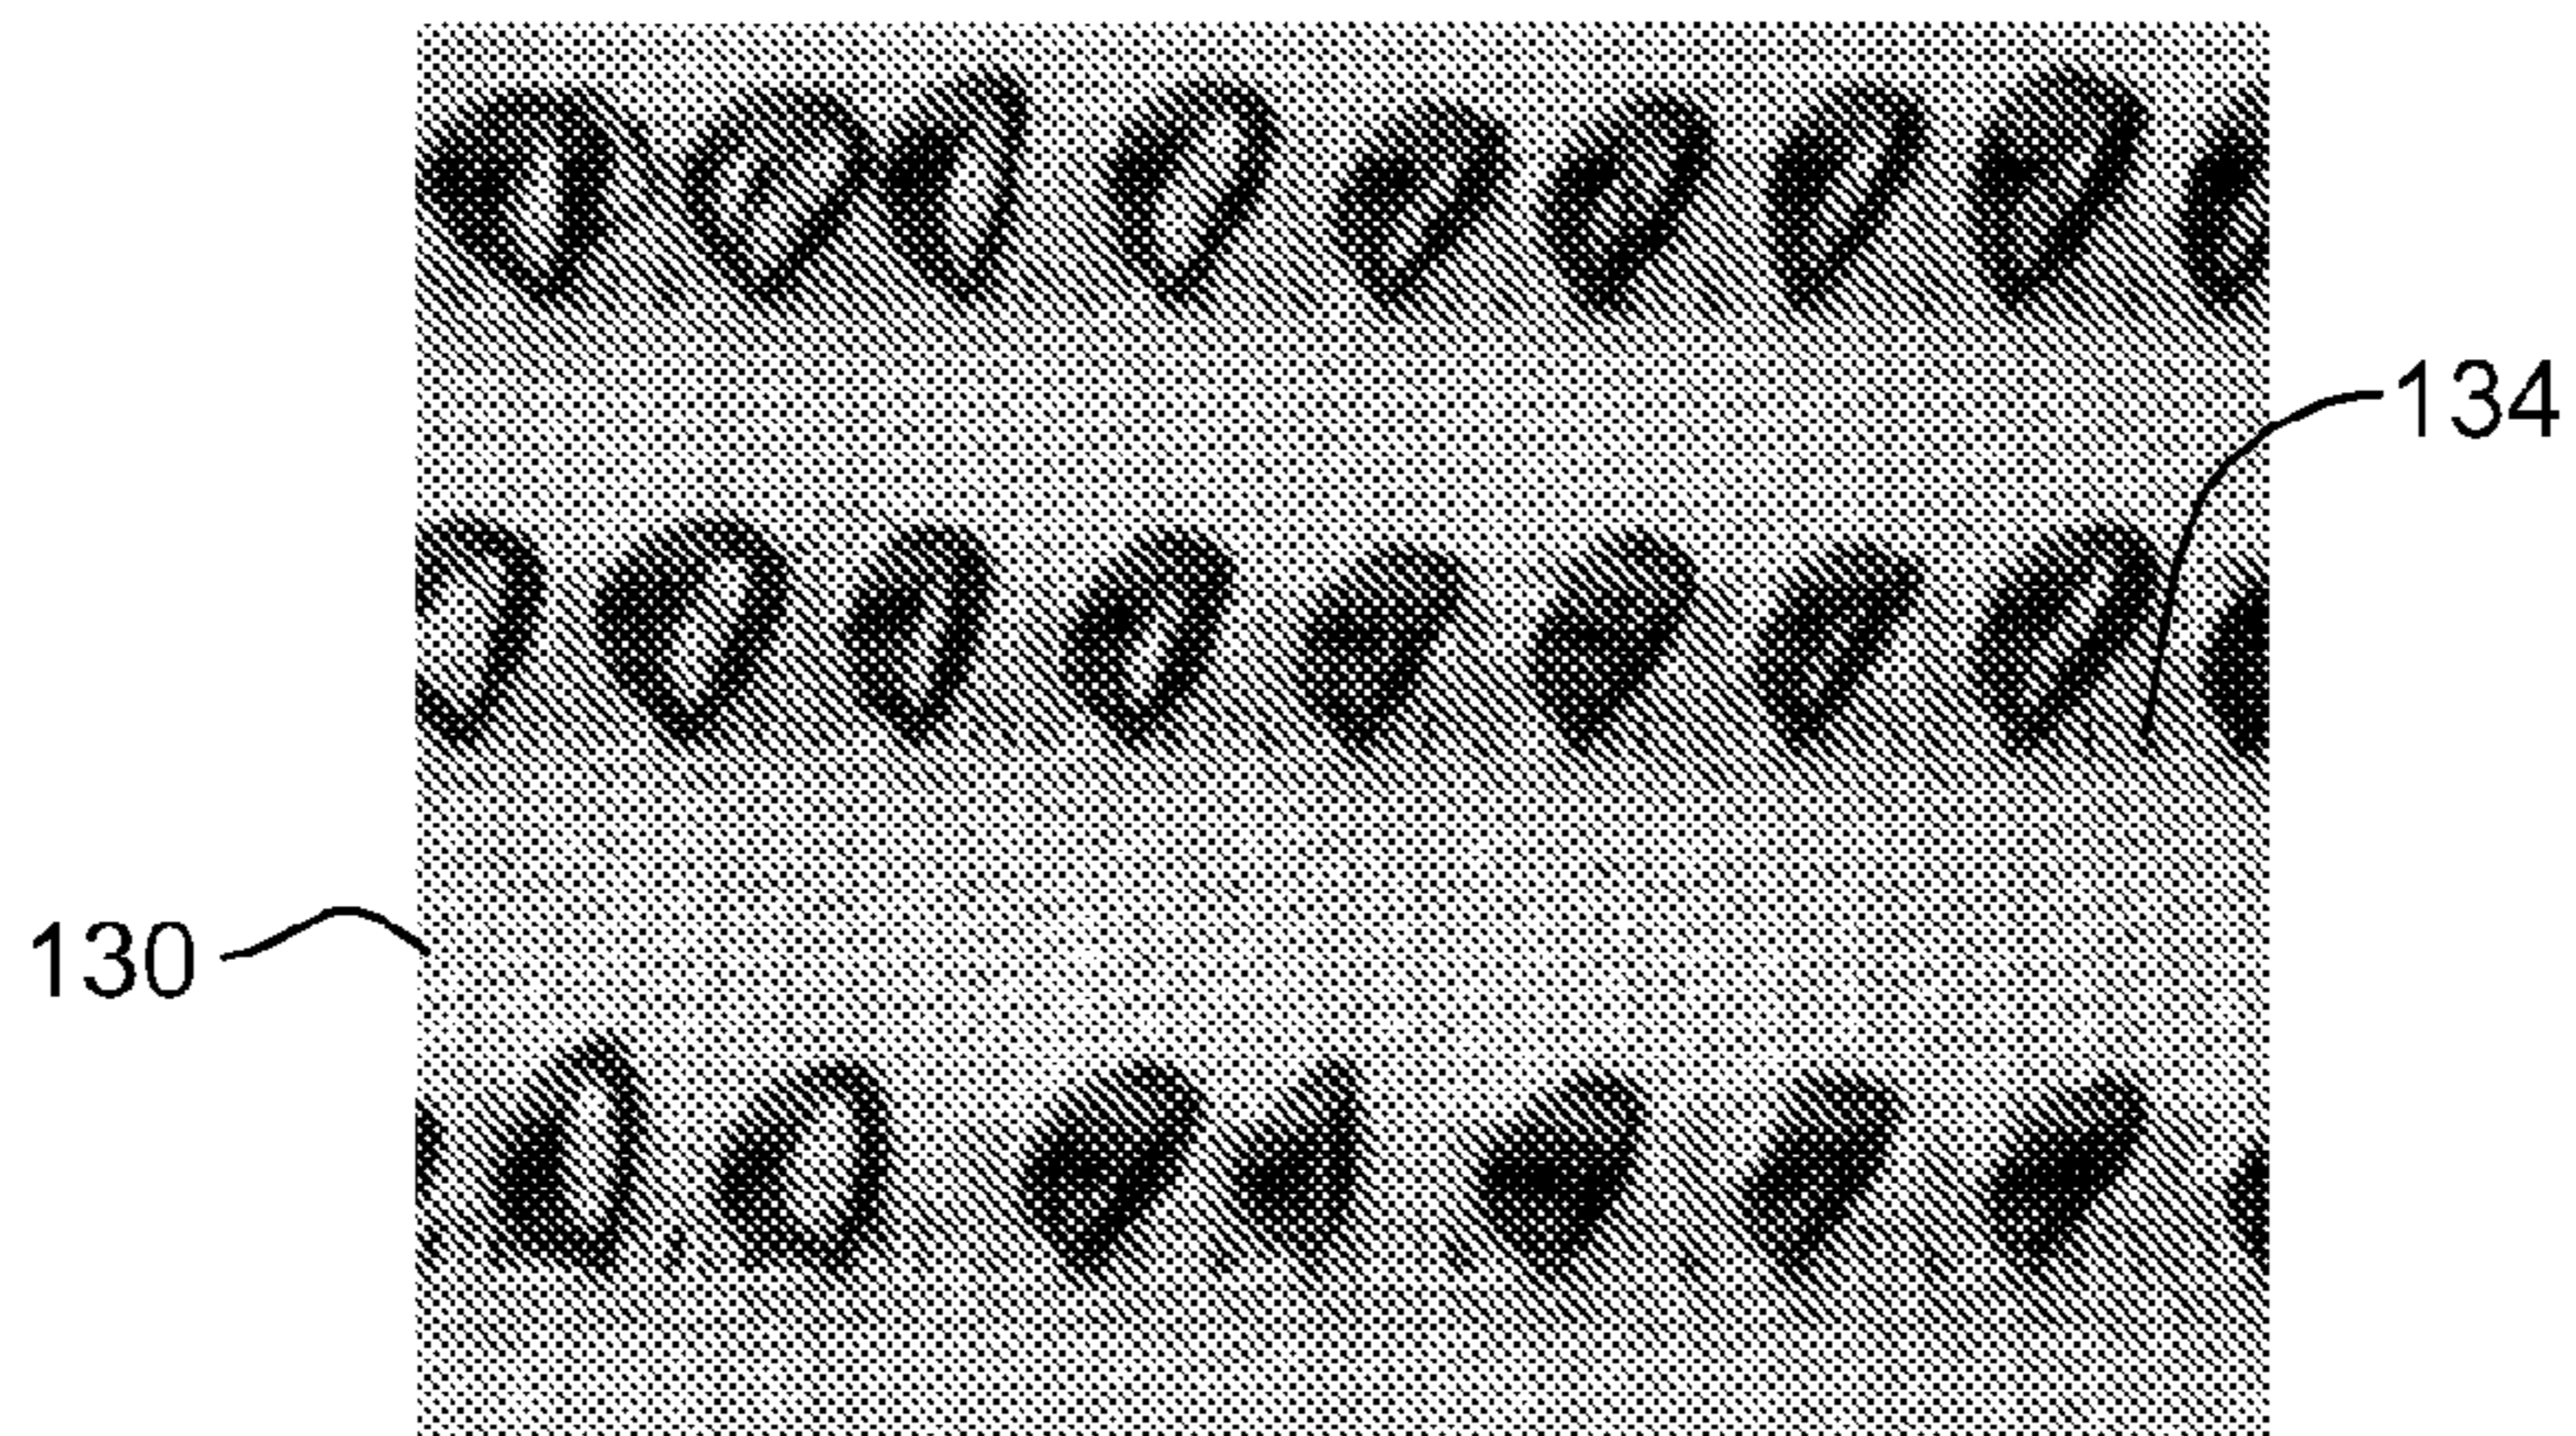 134
130